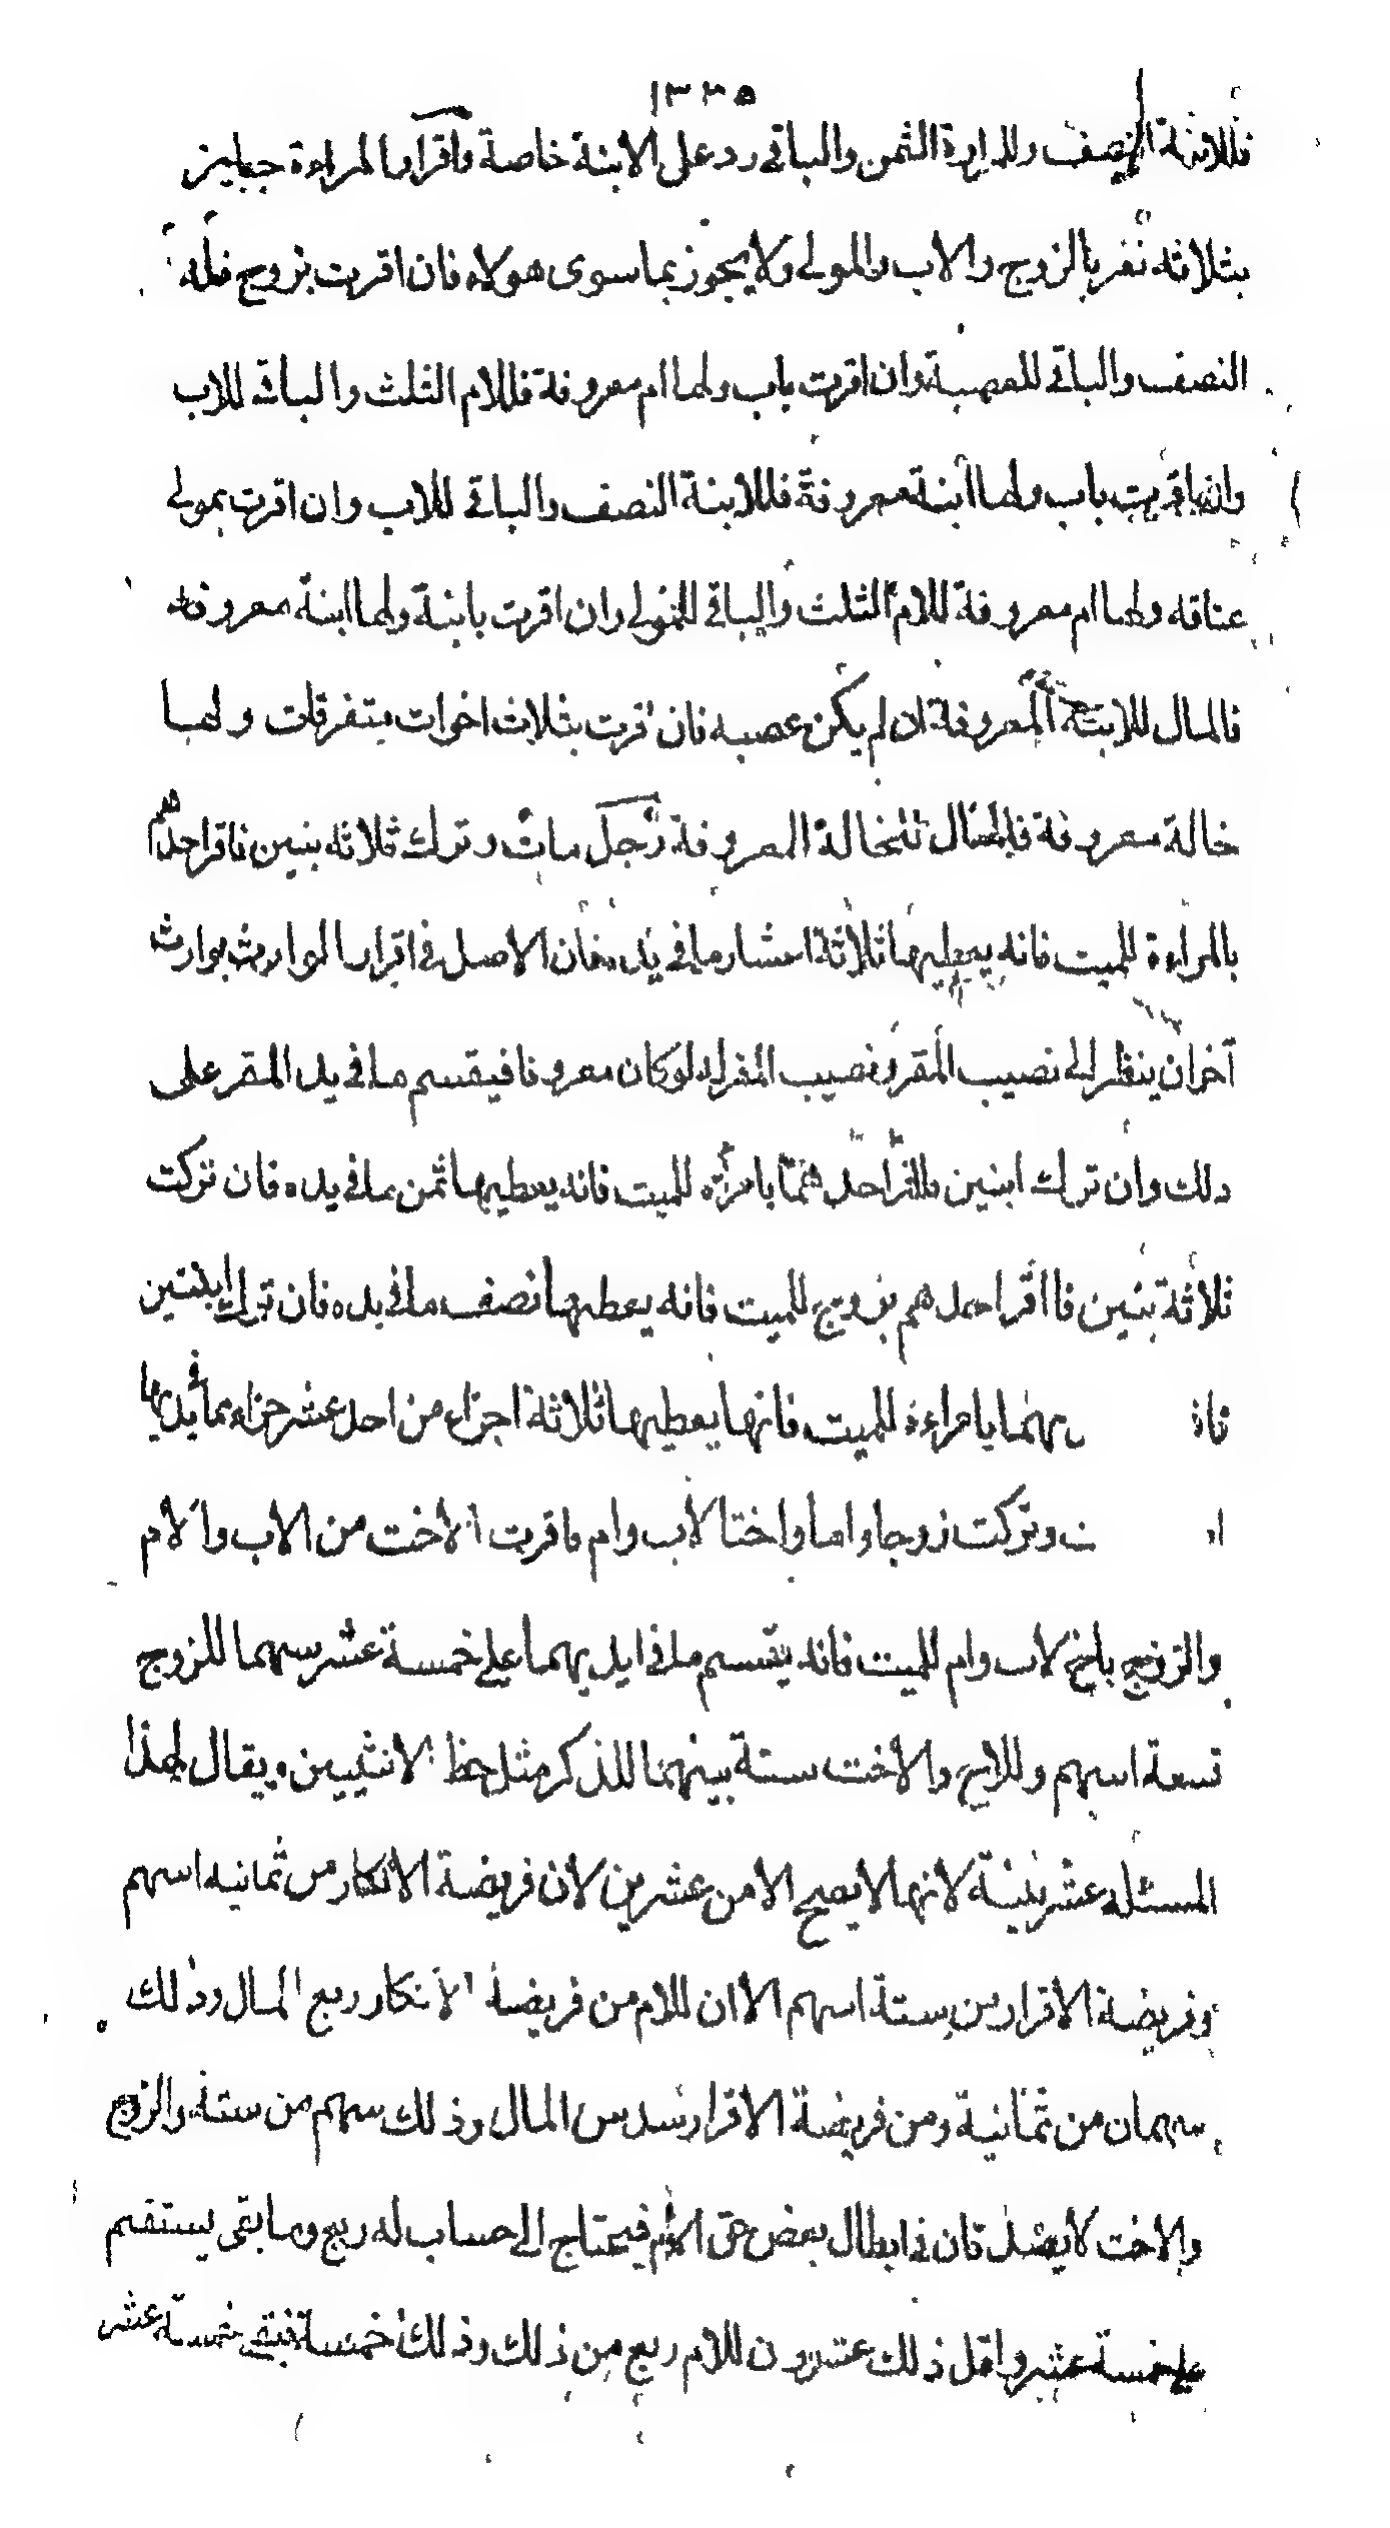 ١٣٣٥
فللابنة النصف وللمراءة الثمن والباقي رد على الابنة خاصة واقرار المراءة جايز
بثلاثه نفر بالزوج والاب والمولى ولا يجوز بما سوى هولاء فان اقرت بزوج فله
النصف والباقي للعصبة وان اقرت باب ولها ام معروفة فللام الثلث والباقي للاب
وان اقرت باب ولها ابنة معروفة فللابنة النصف والباقي للاب وان اقرت بمولى
عتاقه ولها ام معروفة للام الثلث والباقي للمولى وان اقرت بابنة ولها ابنة معروفه
فالمال للابنة المعروفة ان لم يكن عصبه فان اقرت بثلاث اخوات متفرقات ولها
خالة معروفة فالمال للخالة المعروفة رجل مات وترك ثلاثه بنين فاقر احدهم
بالمراءة للميت فانه يعطيها ثلاثة اعشار ما في يده فان الاصل في اقرار الوارث بوارث
آخر ان ينظر الى نصيب المقر ونصيب المقر له لو كان معروفا فيقسم ما في يد المقر على
ذلك وان ترك ابنين فاقر احدهما بامراة للميت فانه يعطيها ثمن ما في يده فان تركت
ثلاثة بنين فاقر احدهم بزوج للميت فانه يعطيها نصف ما في يده فان ترك ابنتين
فاذ يهما بامراءة للميت فانها يعطيها ثلاثة اجزاء من احد عشر جزاء مما في يديها
وتركت زوجا واما واختا لاب وام فاقرت الاخت من الاب والام
والزوج باخ لاب وام للميت فانه يقسم ما في ايديهما على خمسة عشر سهما للزوج
تسعة اسهم وللاخ والاخت ستة بينهما للذكر مثل حظ الانثيين ويقال لهذا
المسئله عشرينية لانها لا يصح الا من عشرين لان فريضة الانكار من ثمانيه اسهم
وفريضة الاقرار من ستة اسهم الا ان للام من فريضة الانكار ربع المال وذلك
سهمان من ثمانية ومن فريضة الاقرار سدس المال وذلك سهم من ستة والزوج
والاخت لا يصدقان في ابطال بعض حق الام فيحتاج الى حساب له ربع وما بقى يستقيم
على خمسة عشر واقل ذلك عشرون للام ربع من ذلك وذلك خمسة فبقى خمسة عشر